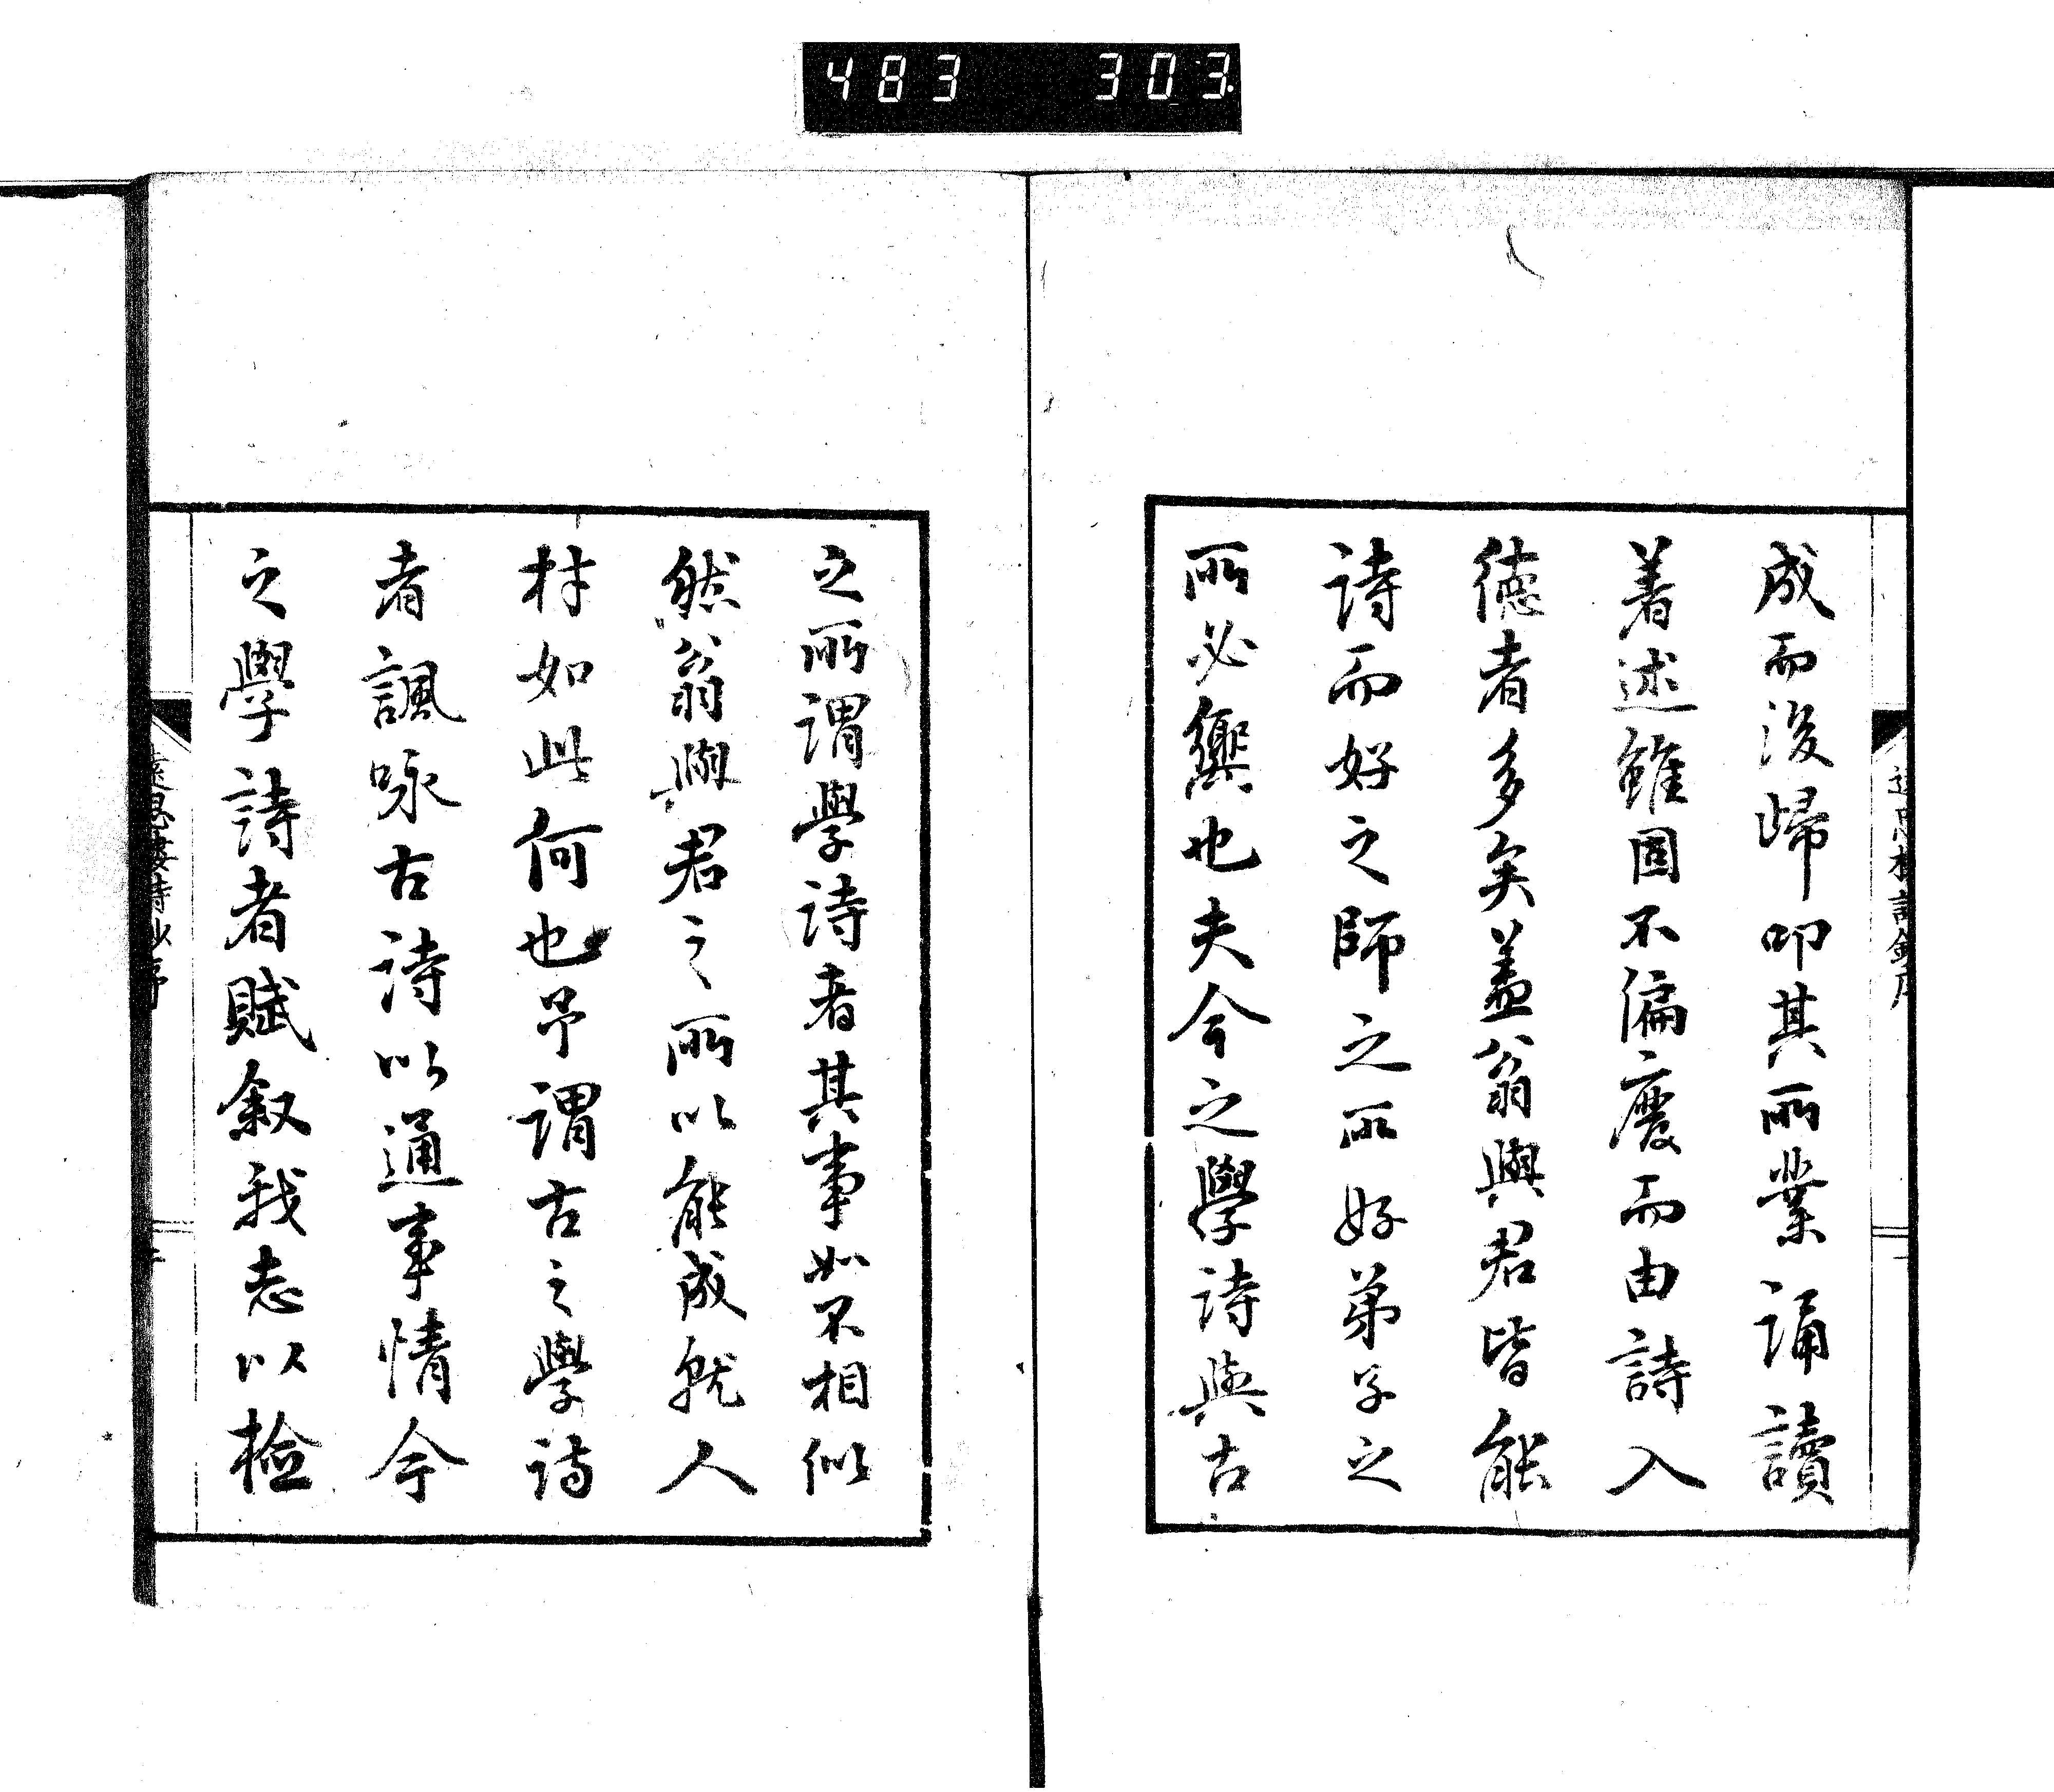 483 303
成而後歸叩其所業誦讀
著述雖固不偏廢而由詩入
德者多矣蓋翁與君皆能
詩而好之師之所好弟子之
所必嚮也夫今之學詩與古
之所謂學詩者其事如不相似
然翁與君之所以能成就人
材如此何也予謂古之學詩
者諷咏古詩以通事情今
之學詩者賦叙我志以檢
遠思樓詩鈔序